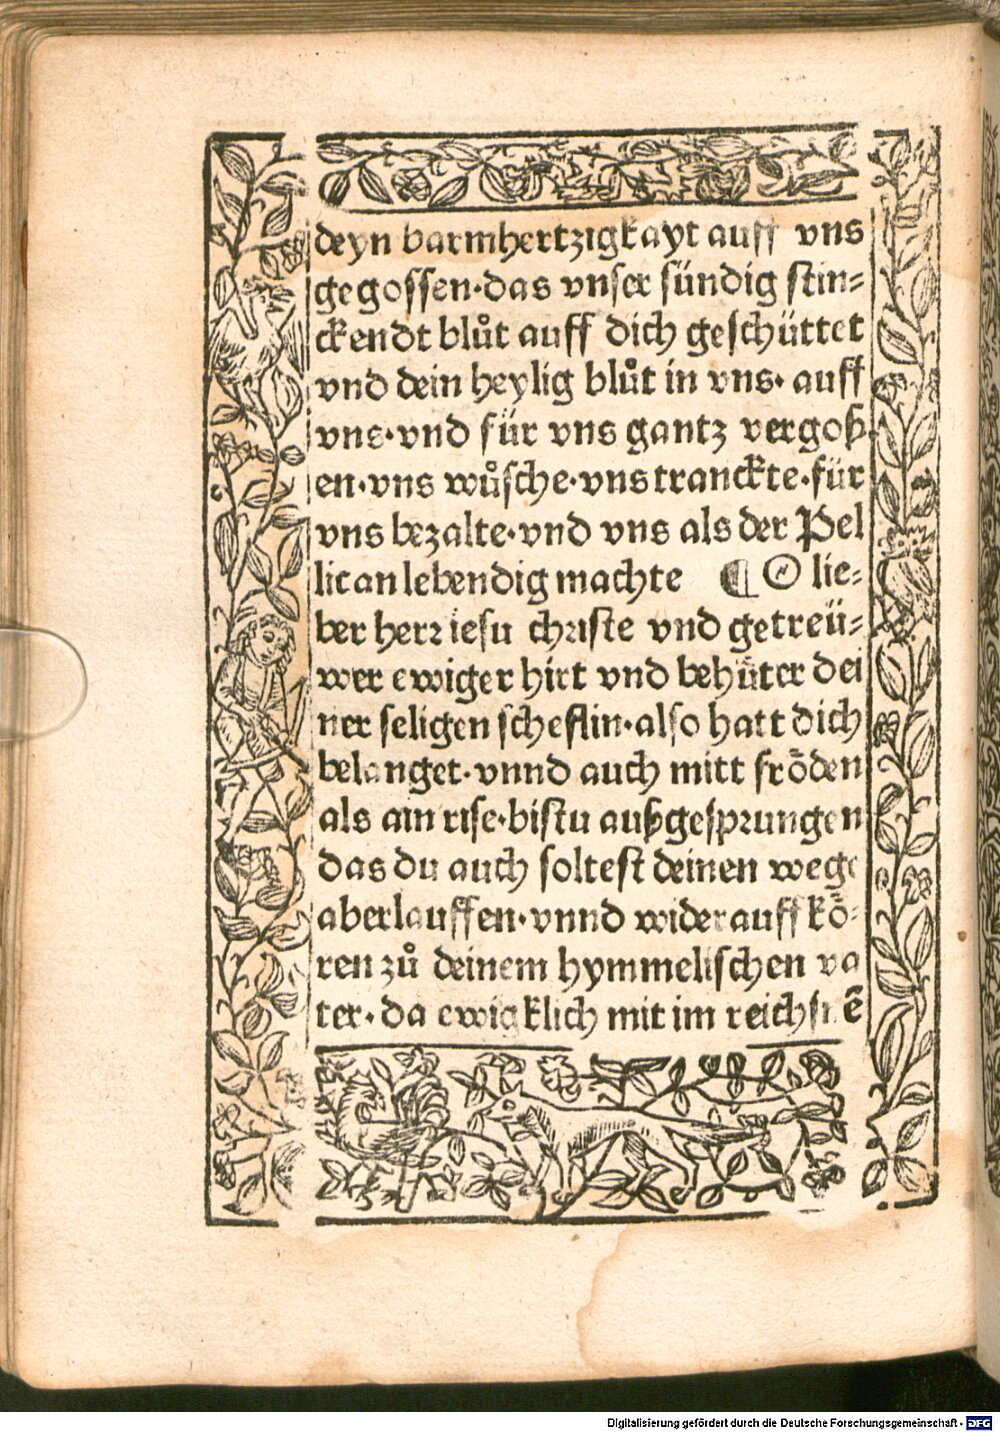 deyn barmhertzigkayt auff vns
gegossen·das vnser sündig stin-
ckendt blůt auff dich geschüttet
vnd dein heylig blůt in vns· auff
vns·vnd für vns gantz vergoß-
en·vns wůsche·vns tranckte·für
vns bezalte·vnd vns als der Pel
lican lebendig machte ¶ O lie-
ber herr iesu christe vnd getreü-
wer ewiger hirt vnd behüter dei
ner seligen scheflin·also hatt dich
belanget·vnnd auch mitt frőden
als ain rise·bistu außgesprungen
das du auch soltest deinen wege
aberlauffen·vnnd wider auff kő-
ren zů deinem hymmelischen va
ter·da ewigklich mit im reichsnē
Digitalisierung gefördert durch die Deutsche Forschungsgemeinschaft - DFG